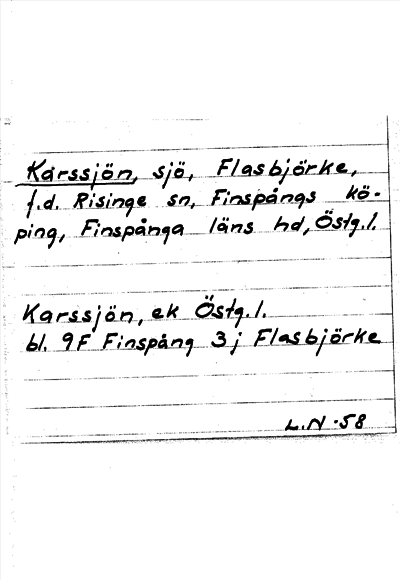 Karssjön, sjö, Flasbjörke,
f.d. Risinge sn, Finspångs kö-
ping, Finspånga läns hd, Östg.l.
Karssjön, ek Östg.l.
bl. 9F Finspång 3j Flasbjörke
L.N -58